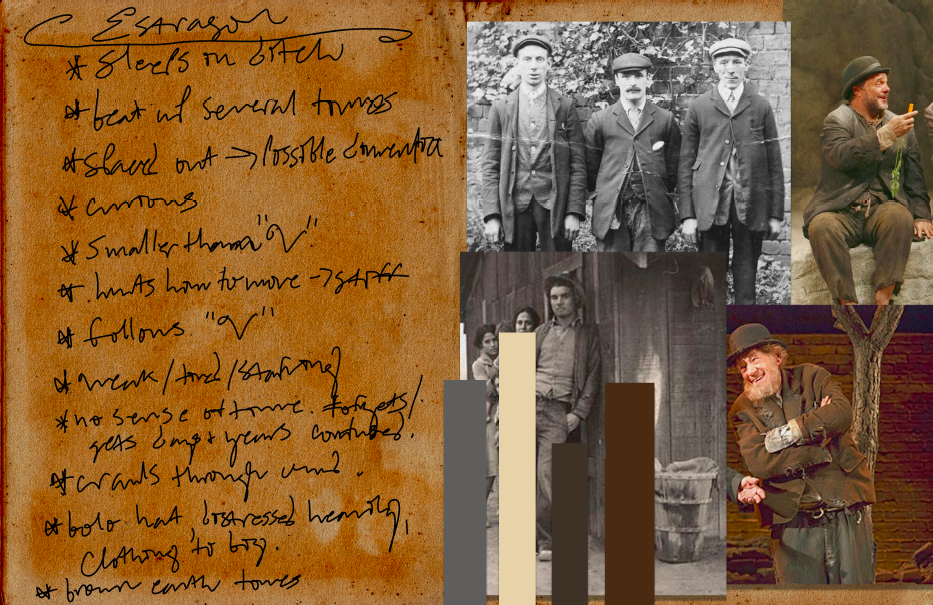 Estragon
* Sleeps in ditch
* beat up several times
* spaced out → possible dementia
* curious
* smaller than "V"
* hurts him to move → stiff
* follows "V"
* weak / tired / starving
* no sense of time. forgets /
gets days & years confused.
* crawls through mud.
* bolo hat, distressed heavily,
clothing to big.
* brown earth tones